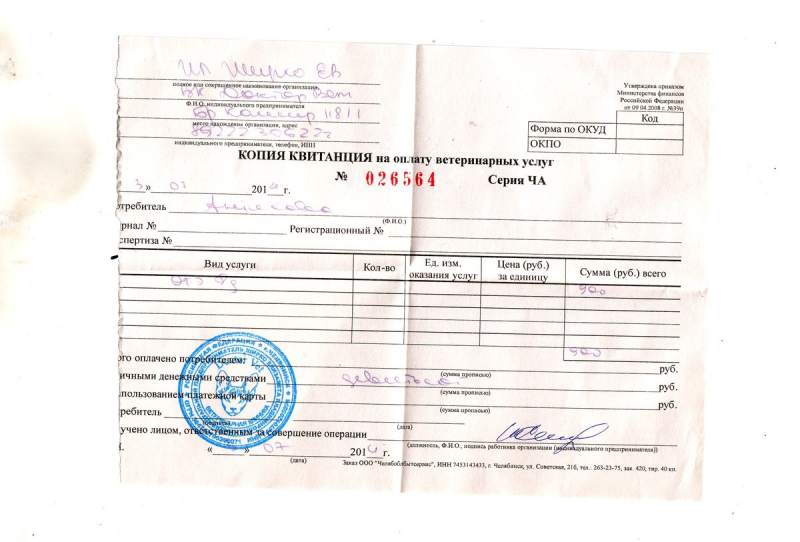 ИП Шурко ЕВ
полное или сокращенное наименование организации,
ВК Доктор Вет
Ф.И.О. индивидуального предпринимателя
место нахождение организации, адрес
индивидуального предпринимателя, телефон, ИНН
Утверждена приказом
Министерства финансов
Российской Федерации
от 09.04.2008 г. №39н
Код
Форма по ОКУД
ОКПО
КОПИЯ КВИТАНЦИЯ на оплату ветеринарных услуг
№ 026564 Серия ЧА
3» 07 2014 г.
отребитель
(Ф.И.О.)
урнал № Регистрационный №
спертиза №
Вид услуги Кол-во Ед. изм. оказания услуг Цена (руб.) за единицу Сумма (руб.) всего
900
900
ого оплачено потребителем: руб.
(сумма прописью)
ичными денежными средствами девятьсот руб.
(сумма прописью)
пользованием платежной карты руб.
(сумма прописью)
отребитель
(дата)
учено лицом, ответственным за совершение операции
(должность, Ф.И.О., подпись работника организации (индивидуального предпринимателя))
« » 07 2014 г.
(дата)
Заказ ООО "Челябоблбытсервис", ИНН 7453143433, г. Челябинск, ул. Советская, 21б, тел. 263-23-75, зак. 420, тир. 40 кн.